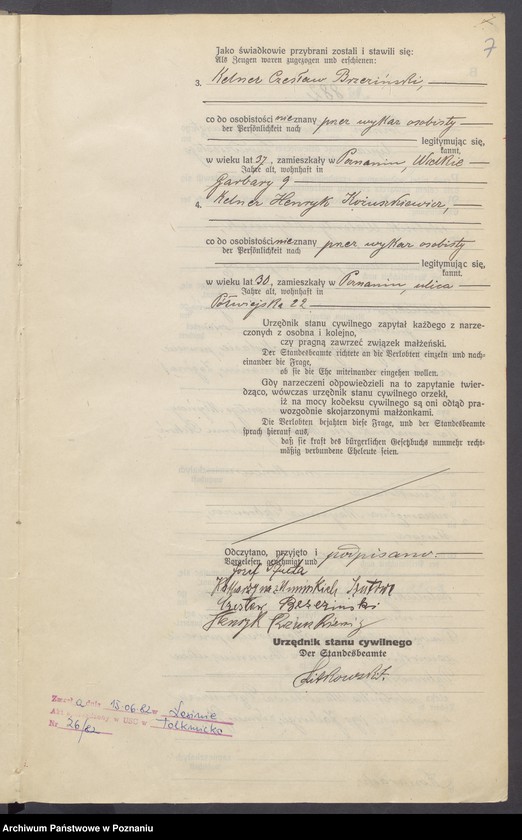 7
Jako świadkowie przybrani zostali i stawili się:
Als Zeugen waren zugezogen und erschienen:
3. Kelner Czesław Brzeziński,
co do osobistości nieznany przez wykaz osobisty
der Persönlichkeit nach
legitymując się,
kannt,
w wieku lat 37, zamieszkały w Poznaniu, Wielkie
Jahre alt, wohnhaft in
Garbary 9
4. Kelner Henryk
co do osobistości nieznany przez wykaz osobisty
der Persönlichkeit nach
legitymując się,
kannt.
w wieku lat 30, zamieszkały w Poznaniu, ulica
Jahre alt, wohnhaft in
Półwiejska 22
Urzędnik stanu cywilnego zapytał każdego z narze-
czonych z osobna i kolejno,
czy pragną zawrzeć związek małżeński.
Der Standesbeamte richtete an die Verlobten einzeln und nach-
einander die Frage,
ob sie die Ehe miteinander eingehen wollen.
Gdy narzeczeni odpowiedzieli na to zapytanie twier-
dząco, wówczas urzędnik stanu cywilnego orzekł,
iż na mocy kodeksu cywilnego są oni odtąd pra-
wozgodnie skojarzonymi małżonkami.
Die Verlobten bejahten diese Frage, und der Standesbeamte
sprach hierauf aus,
daß sie kraft des bürgerlichen Gesetzbuchs nunmehr recht-
mäßig verbundene Eheleute seien.
Odczytano, przyjęto i podpisano.
Vorgelesen, genehmigt und
Józef
Katarzyna
Czesław Brzeziński
Henryk
Urzędnik stanu cywilnego
Der Standesbeamte
Zmarła dnia 15.06.82 w
w USC w
Nr 26/82
Archiwum Państwowe w Poznaniu